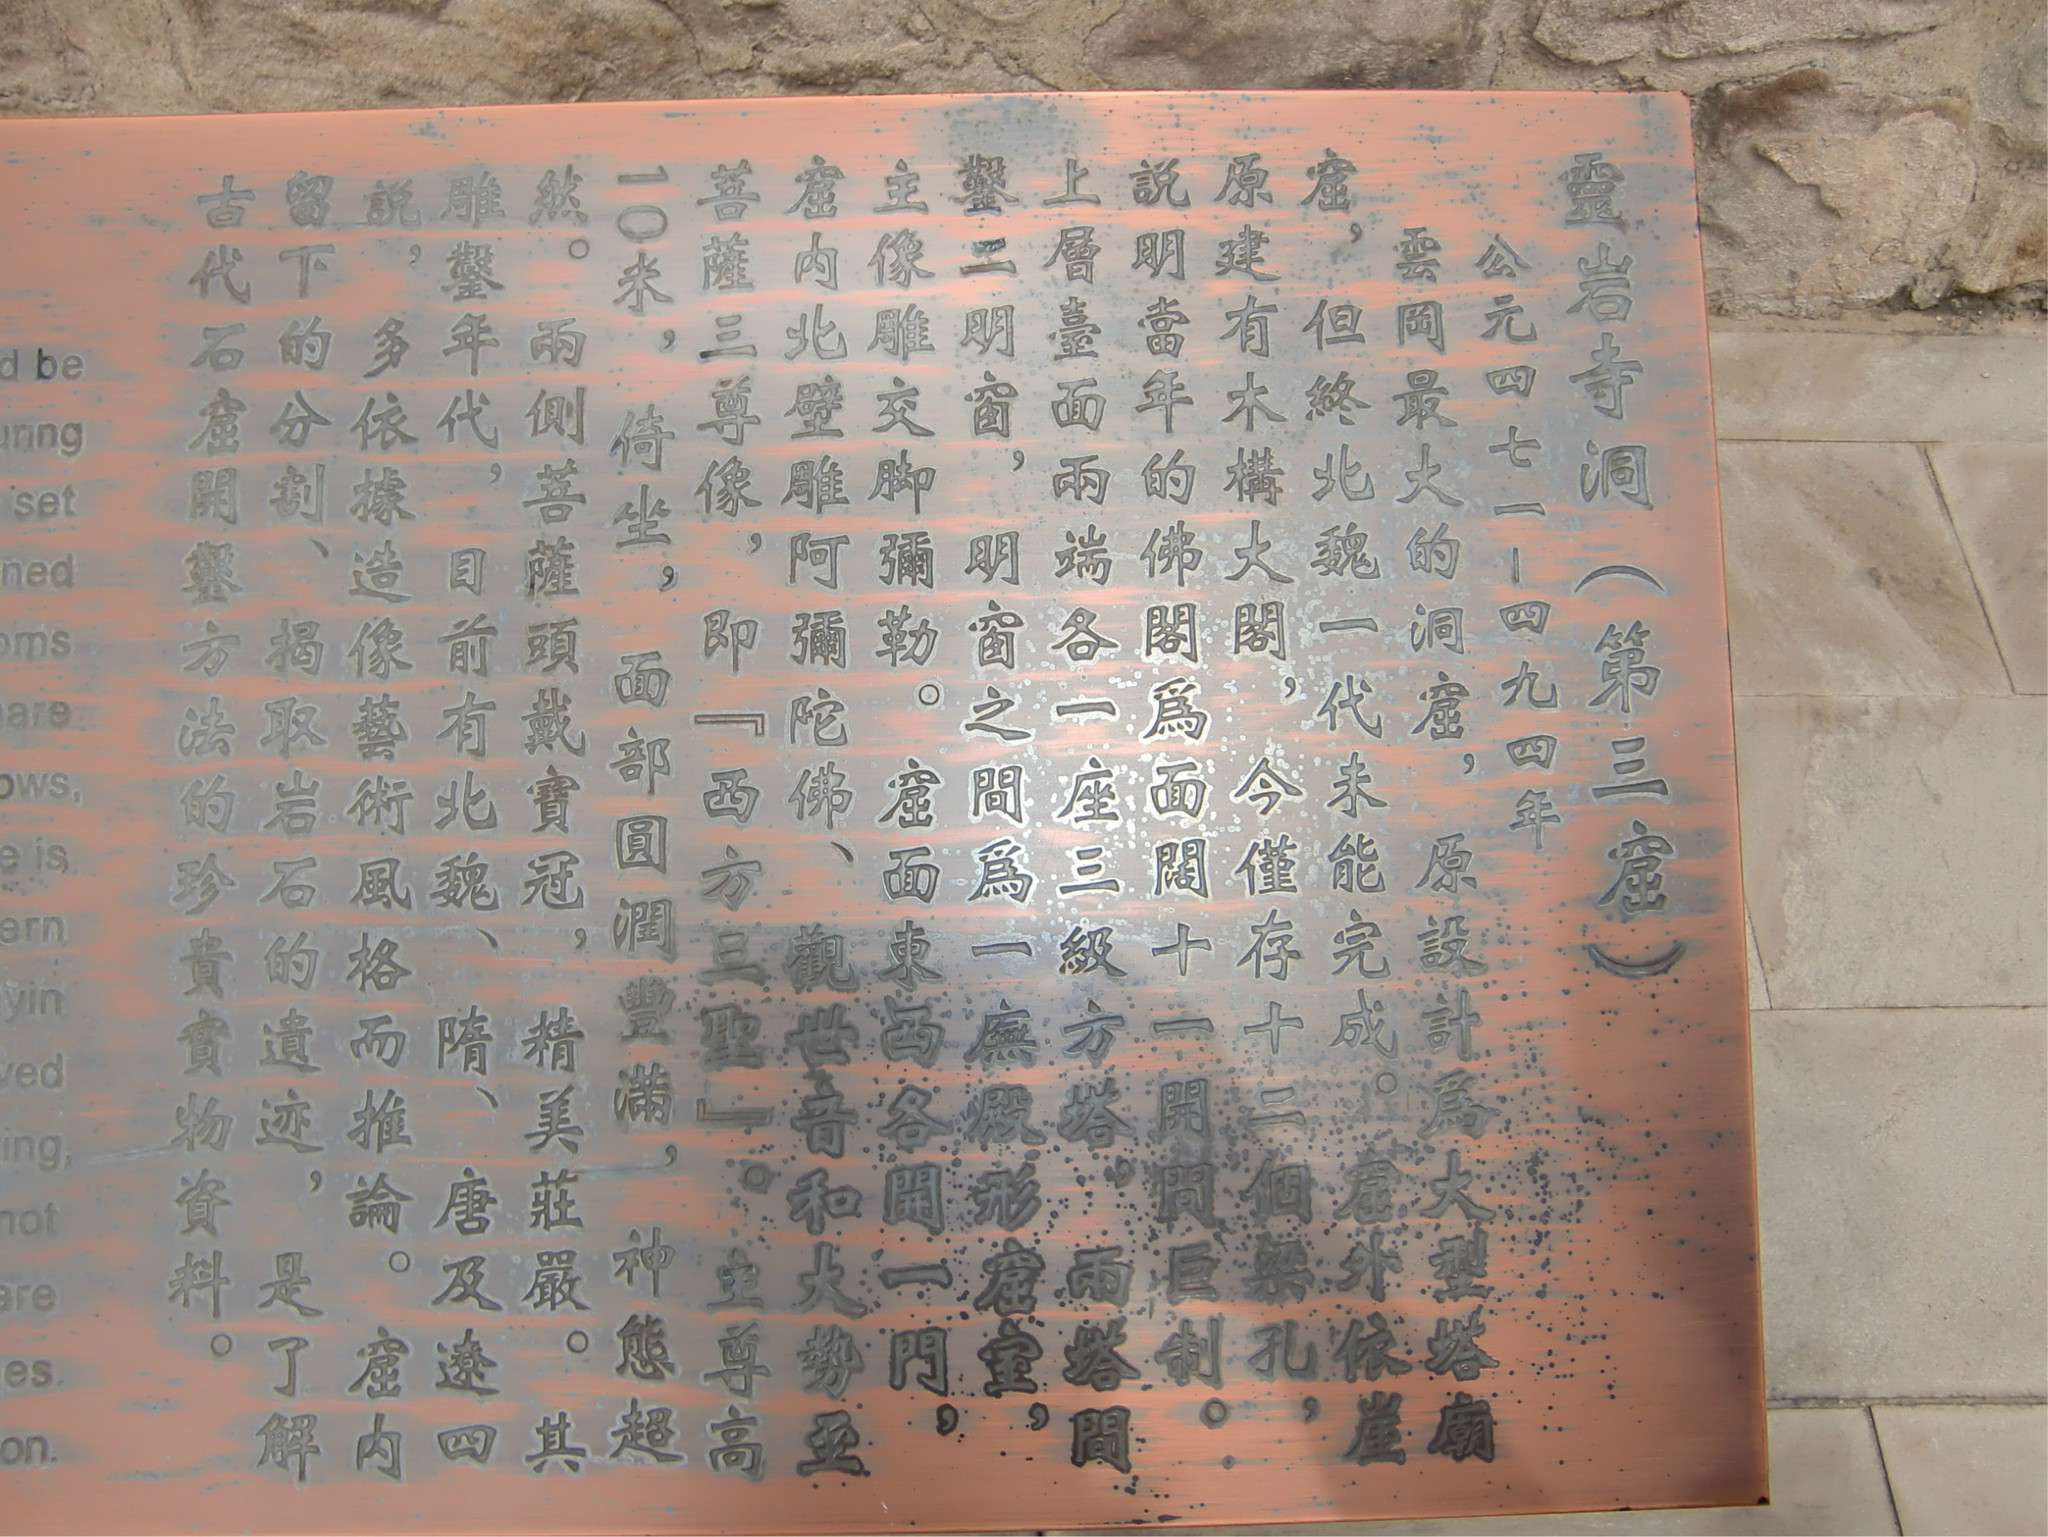 靈岩寺洞（第三窟）
公元四七一–四九四年
雲岡最大的洞窟，原設計爲大型塔廟
窟，但終北魏一代未能完成。窟外依崖
原建有木構大閣，今僅存十二個梁孔，
説明當年的佛閣爲面闊十一開間巨制。
上層臺面兩端各一座三級方塔，兩塔間
鑿二明窗，明窗之間爲一廡殿形窟室，
主像雕交脚彌勒。窟面東西各開一門，
窟内北壁雕阿彌陀佛、觀世音和大勢至
菩薩三尊像，即『西方三聖』。主尊高
一〇米，倚坐，面部圓潤豐滿，神態超
然。兩側菩薩頭戴寶冠，精美莊嚴。其
雕鑿年代，目前有北魏、隋、唐及遼四
説，多依據造像藝術風格而推論。窟内
留下的分割、揭取岩石的遺迹，是了解
古代石窟開鑿方法的珍貴實物資料。
d be
uring
set
ned
oms
are
ows,
e is
ern
yin
ved
ing,
not
are
es
on.